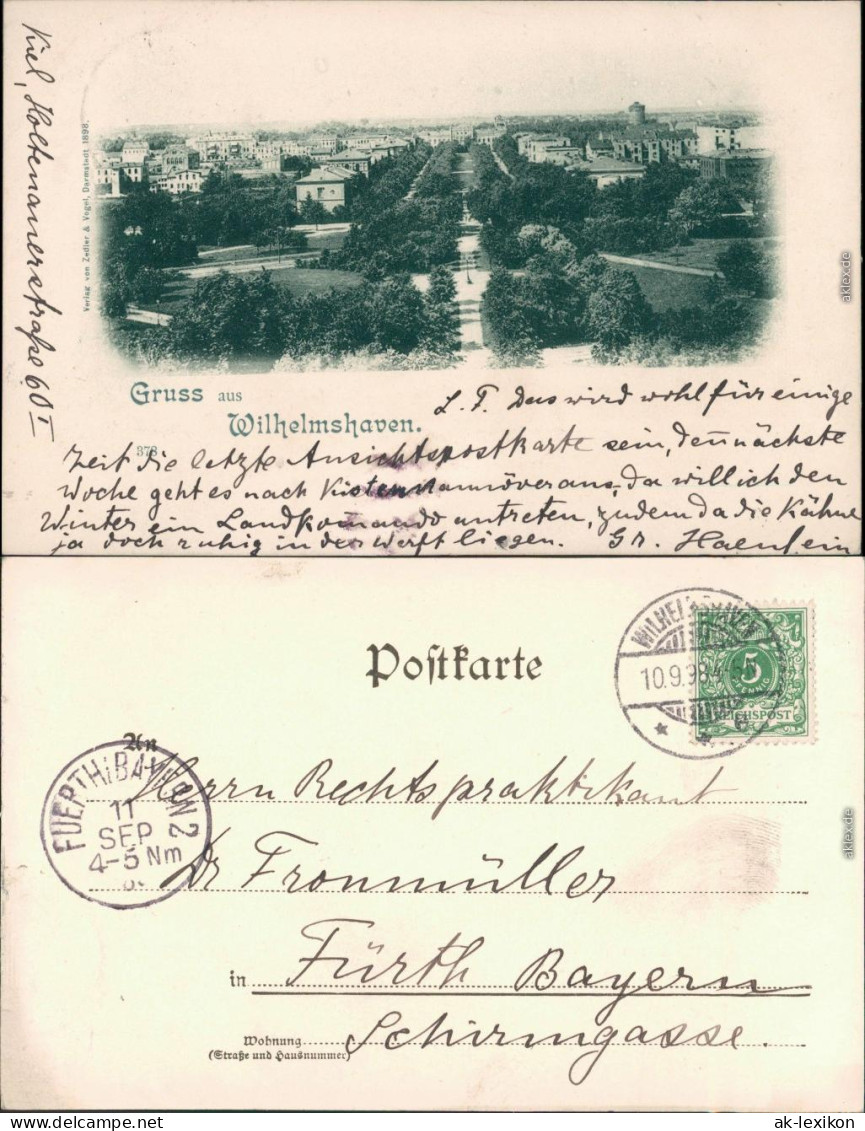 Kiel, Holtenauerstraße 60 I
Verlag von Zedler & Vogel, Darmstadt 1898.
Gruss aus
Wilhelmshaven.
373
L. F. Das wird wohl für einige
Zeit die letzte Ansichtspostkarte sein, denn nächste
Woche geht es nach Kistenmannöver aus, da will ich den
Winter ein Landkommando antreten, zudem da die Kähne
ja doch ruhig in der Werft liegen. Gr. Haenlein
aklex.de
Postkarte
WILHELMSHAVEN
10.9.98
5
PFENNIG
REICHSPOST
An
FUERTH i BAYERN 2
11
SEP
4-5 Nm
Herrn Rechtspraktikant
Dr Fronmüller
in Fürth Bayern
Wohnung Schirmgasse.
(Straße und Hausnummer)
aklex.de
ak-lexikon